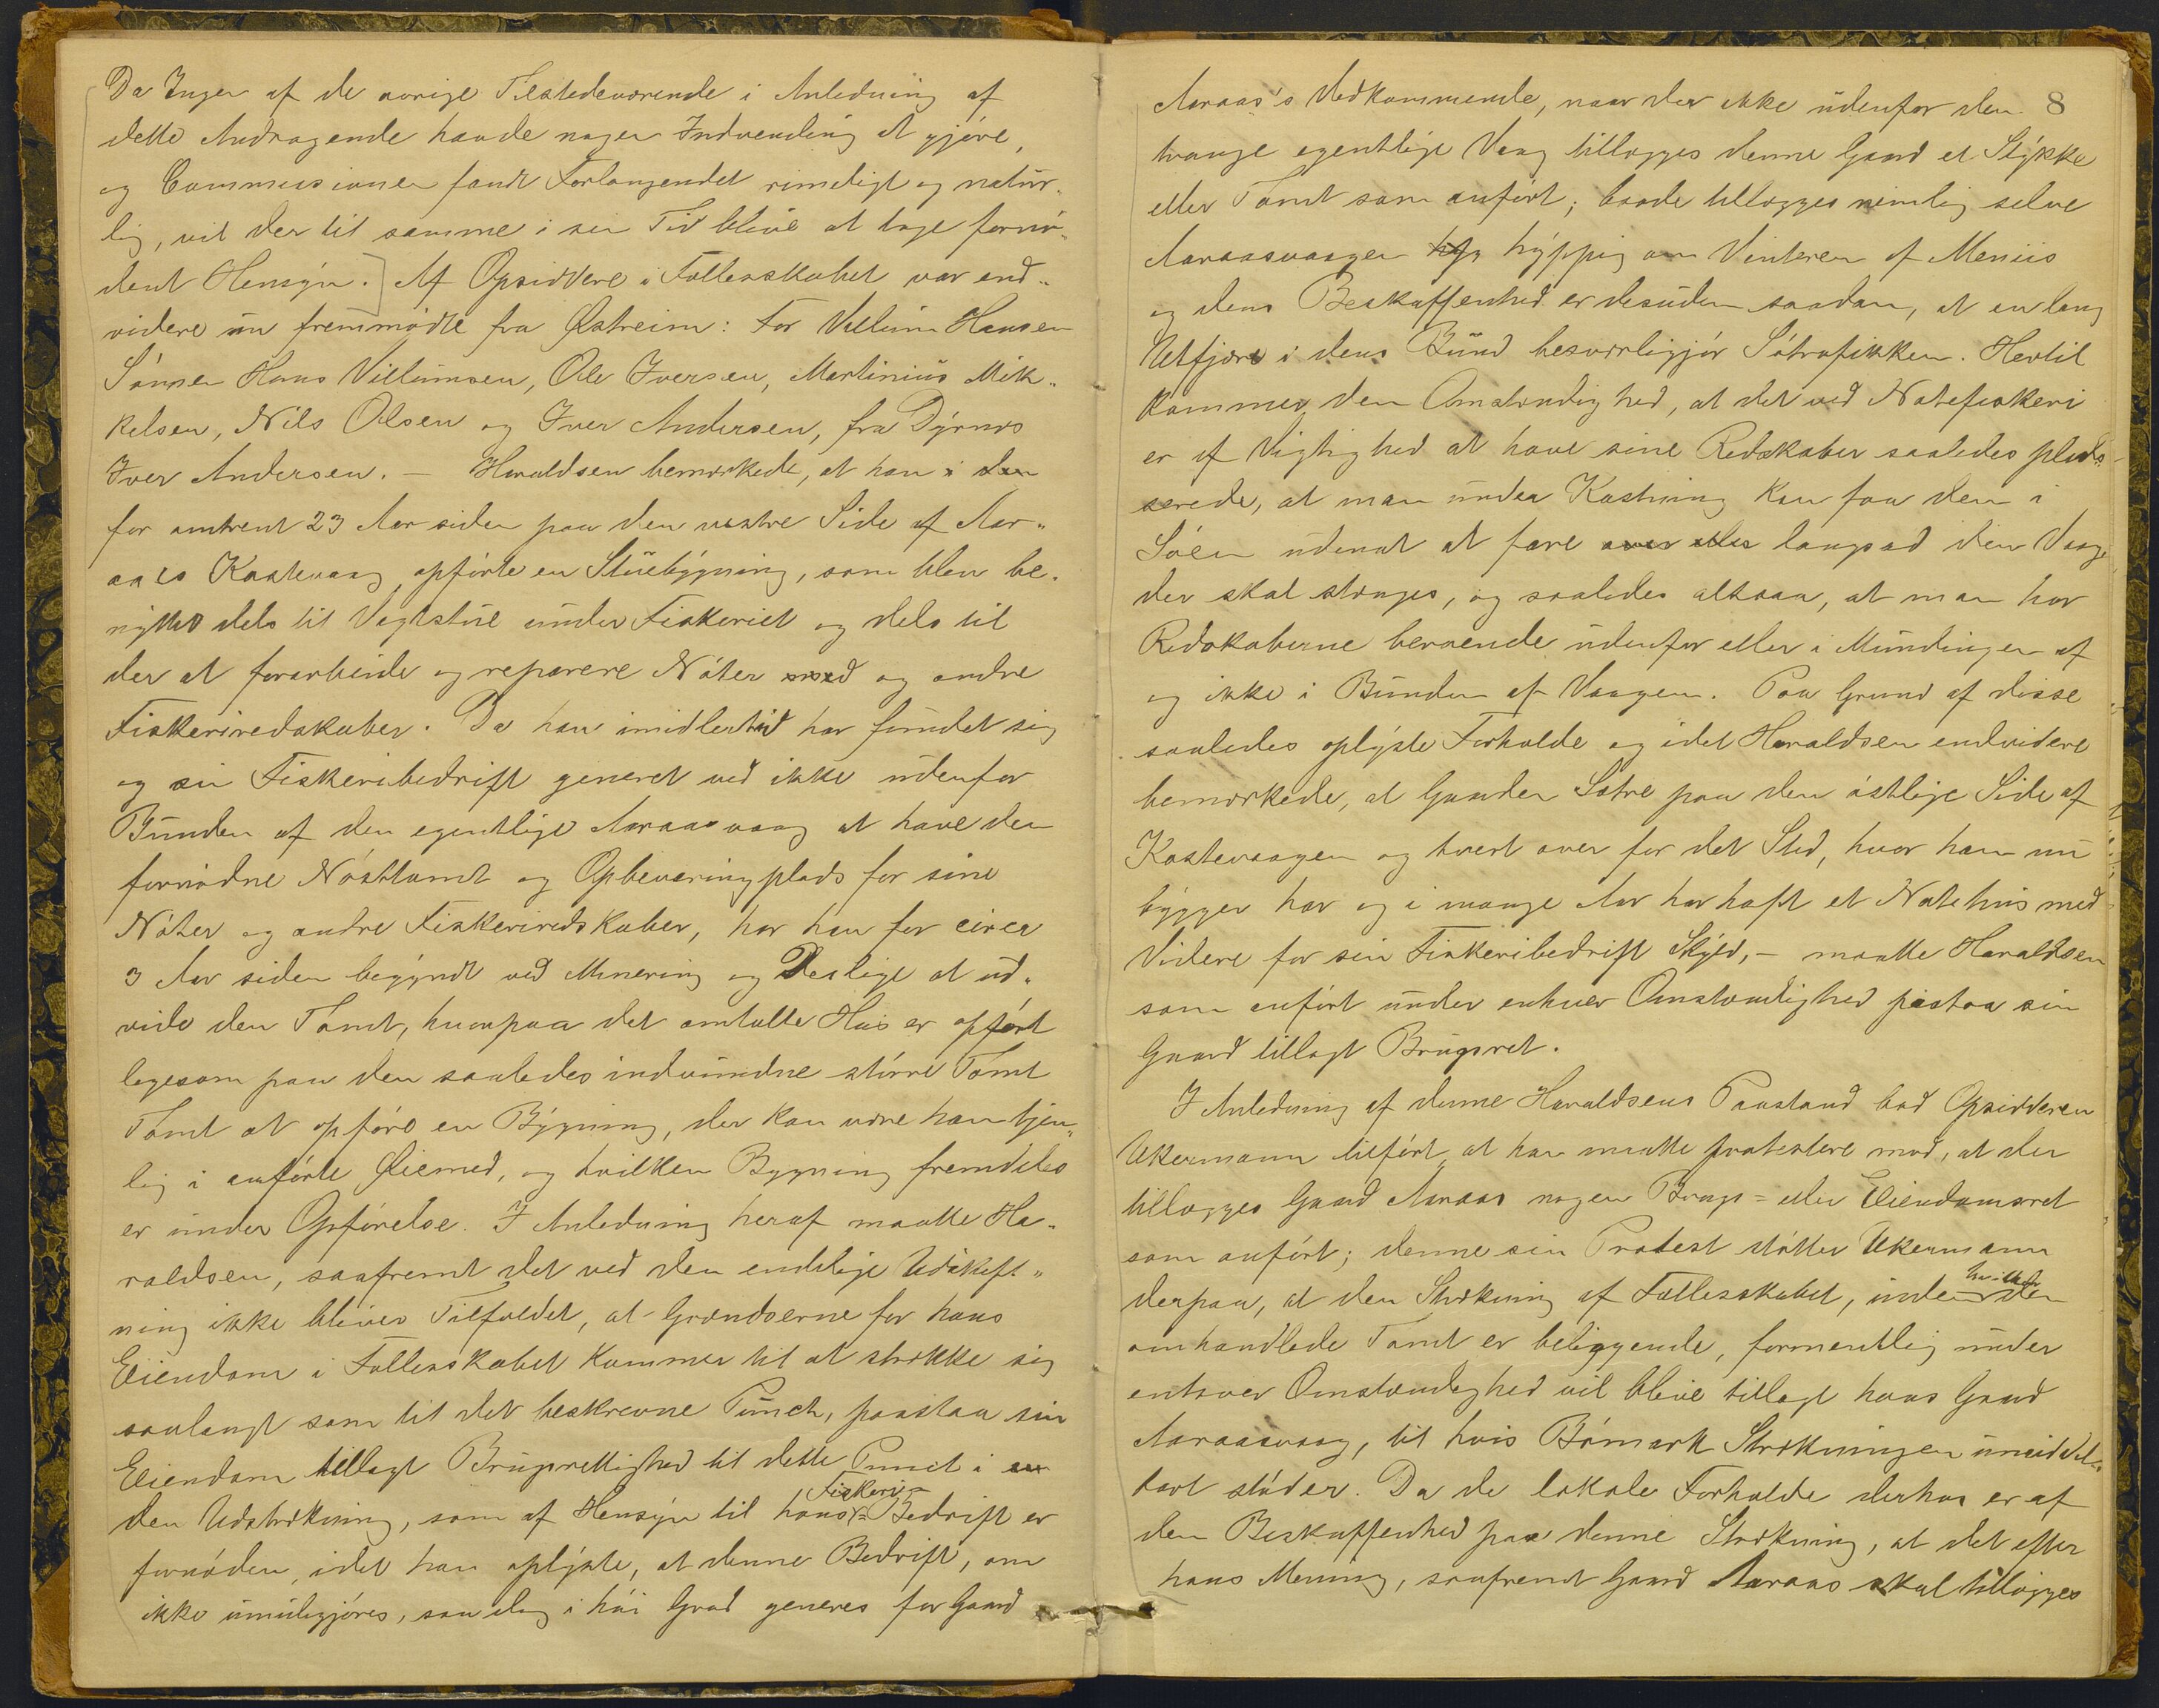 Da Ingen af de øvrige Tilstedeværende i Anledning af
dette Andragende havde nogen Indvending at gjøre,
og Commissionen fandt Forlangendet rimeligt og natur-
lig, vil der til samme i sin Tid blive at tage fornø-
dent Hensyn.] Af Opsiddere i Fællesskabet var end-
videre nu fremmødte fra Østreim: For Villum Hansen
Sønnen Hans Villumsen, Ole Iversen, Martinius Mik-
kelsen, Nils Olsen og Iver Andersen, fra Dyrnæs
Iver Andersen. — Haraldsen bemærkede, at han i den
for omtrent 23 Aar siden paa den vestre Side af Aar-
aas Kastevaag opførte en Stuebygning, som blev be-
nyttet dels til Vegtstue under Fiskeriet og dels til
der at forarbeide og reparere Nøter med og andre
Fiskeriredskaber. Da han imidlertid har fundet sig
og sin Fiskeribedrift generet ved ikke udenfor
Bunden af den egentlige Aaraasvaag at have den
fornødne Nøsttomt og Opbevaringsplads for sine
Nøter og andre Fiskeriredskaber, har han for circa
3 Aar siden begyndt ved Minering og Deslige at ud-
vide den Tomt, hvorpaa det omtalte Hus er opført
ligesom paa den saaledes indvundne større Tomt
Tomt at opføre en Bygning, der kan være ham tjen-
lig i anførte Øiemed, og hvilken Bygning fremdeles
er under Opførelse. I Anledning heraf maatte Ha-
raldsen, saafremt det ved den endelige Udskift-
ning ikke bliver Tilfældet, at Grændserne for hans
Eiendom i Fællesskabet kommer til at strække sig
saalangt som til det beskrevne Punct, paastaa sin
Eiendom tillagt Brugsrettighed til dette Punct i en
den Udstrækning, som af Hensyn til hans Fiskeri-Bedrift er
fornøden, idet han oplyste, at denne Bedrift, om
ikke umuliggjøres, saa dog i høi Grad generes for Gaard
8
Aaraas's Vedkommende, naar der ikke udenfor den
trange egentlige Vaag tillægges denne Gaard et Stykke
eller Tomt som anført; baade tillægges nemlig selve
Aaraasvaagen hyppig om Vinteren af Meniis
og dens Beskaffenhed er desuden saadan, at en lang
Utfjære i dens Bund besværliggjør Søtrafikken. Hertil
kommer den Omstændighed, at det ved Notefiskeri
er af Vigtighed at have sine Redskaber saaledes plad-
serede, at man under Kastning kan faa dem i
Søen udenat at fare over eller langsad den Vaag
der skal stænges, og saaledes altsaa, at man har
Redskaberne beroende udenfor eller i Mundingen af
og ikke i Bunden af Vaagen. Paa Grund af disse
saaledes oplyste Forholde og idet Haraldsen endvidere
bemærkede, at Gaarden Sætre paa den østlige Side af
Kastevaagen og tvert over for det Sted, hvor han nu
bygger har og i mange Aar har haft et Notehus med
Videre for sin Fiskeribedrift Skyld, — maatte Haraldsen
som anført under enhver Omstændighed paastaa sin
Gaard tillagt Brugsret.
I Anledning af denne Haraldsens Paastand bad Opsidderen
Ukermann tilført, at han maatte protestere mod, at der
tillægges Gaard Aaraas nogen Brugs- eller Eiendomsret
som anført; denne sin Protest støtter Ukermann
derpaa, at den Strækning af Fællesskabet, inden hvilken den
omhandlede Tomt er beliggende, formentlig under
enhver Omstændighed vil blive tillagt hans Gaard
Aaraasvaag, til hvis Bømark Strækningen umiddel-
bart støder. Da de lokale Forholde derhos er af
den Beskaffenhed paa denne Strækning, at det efter
hans Mening, saafremt Gaard Aaraas skal tillægges